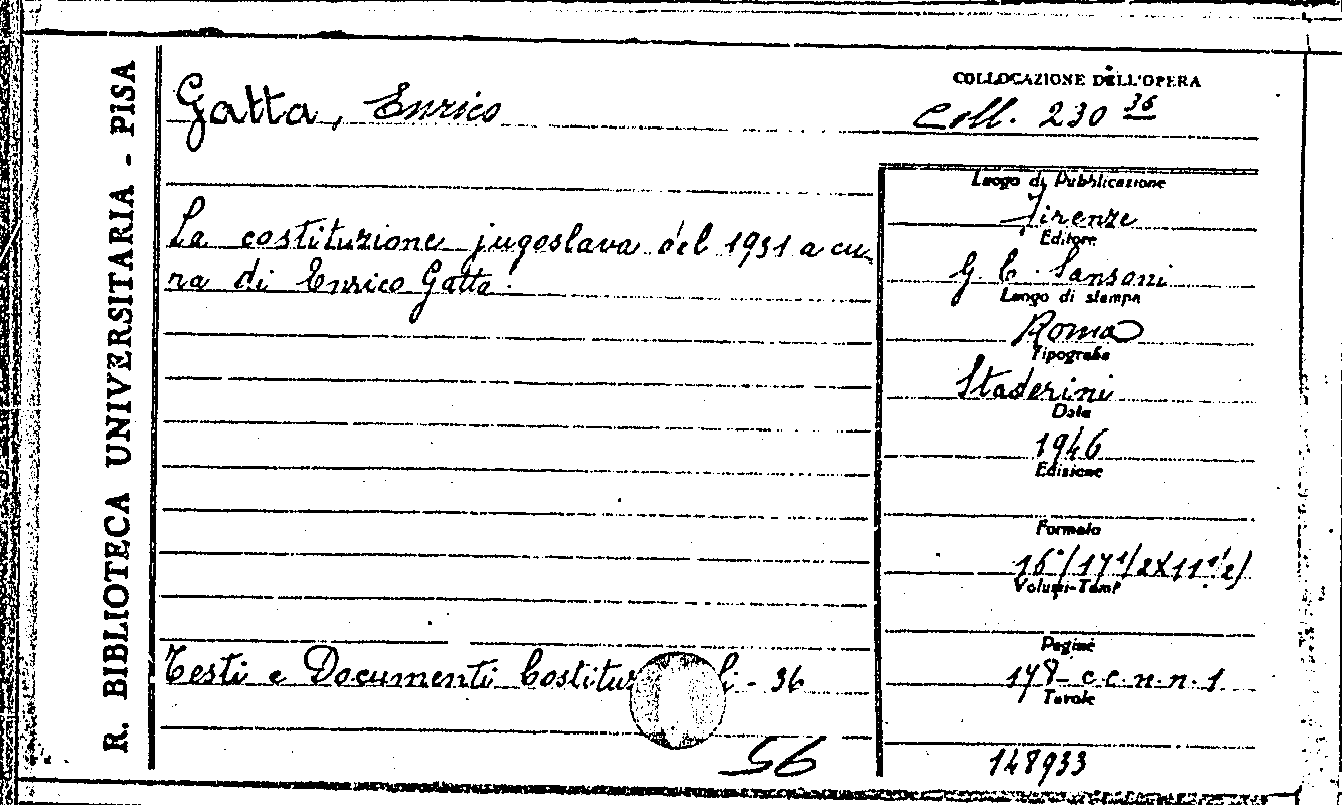 R. BIBLIOTECA UNIVERSITARIA - PISA
Gatta, Enrico
COLLOCAZIONE DELL'OPERA
Coll. 230 36
La costituzione jugoslava del 1931 a cu-
ra di Enrico Gatta.
Testi e Documenti - 36
56
Luogo di Pubblicazione
Firenze
Editore
G. C. Sansoni
Luogo di stampa
Roma
Tipografia
Staderini
Data
1946
Edizione
Formato
16°/17 1/2 X 11 1/2)
Volumi-Tomi
Pagine
178 - c.c.n.n. 1
Tavole
148933